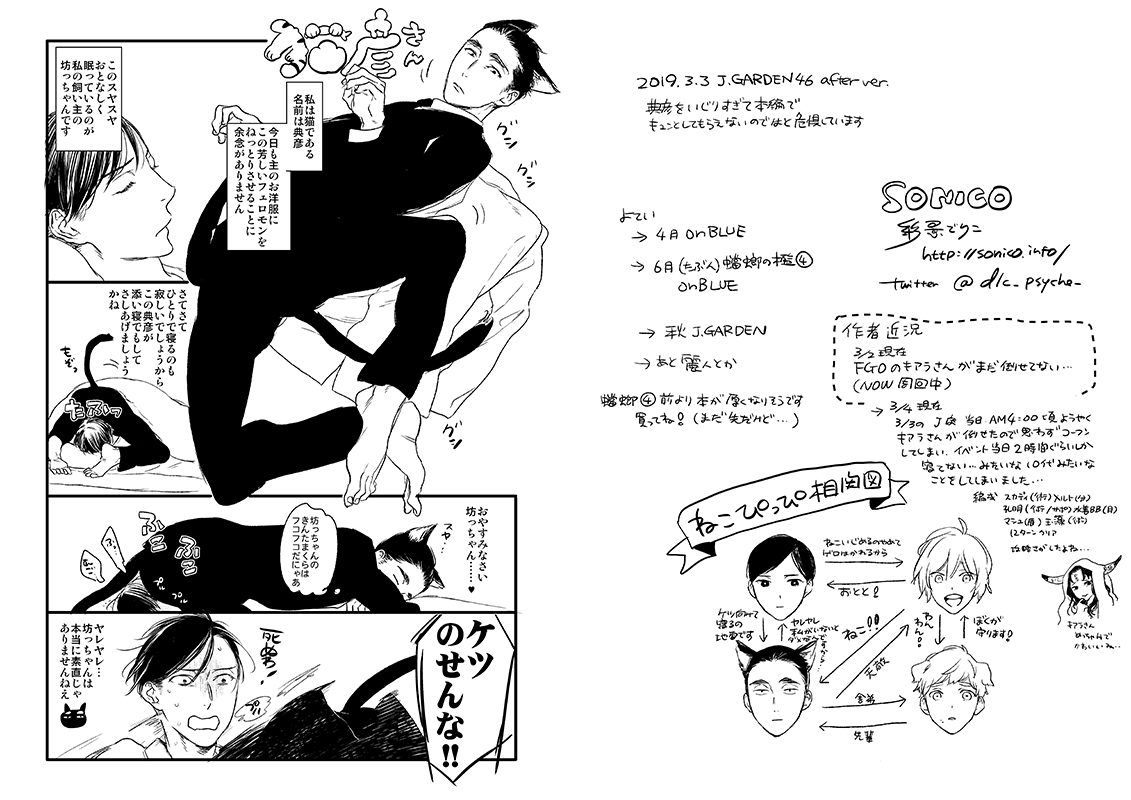 さん
私は猫である
名前は典彦
今日も主のお洋服に
この芳しいフェロモンを
ねっとりさせることに
余念がありません
グン
グン
グン
このスヤスヤ
おとなしく
眠っているのが
私の飼い主の
坊っちゃんです
さてさて
ひとりで寝るのも
寂しいでしょうから
この典彦が
添い寝でもして
さしあげましょう
かね
もぞっ
たふっ
おやすみなさい
坊っちゃん……♥
スヤ…
坊っちゃんの
きんたまくらは
フコフコだにゃあ
ふこ
ふこ
ぷる
ぷる
ケツ
のせんな!!
死ぬわ!
プハ
ヤレヤレ…
坊っちゃんは
本当に素直じゃ
ありませんねえ
2019.3.3 J.GARDEN46 after ver.
典彦をいじりすぎて本編で
キュンとしてもらえないのではと危惧しています
SONICO
彩景でりこ
http://sonico.info/
twitter @dlc_psyche_
よてい
→ 4月 onBLUE
→ 6月(たぶん)蟷螂の檻④
onBLUE
→ 秋 J.GARDEN
→ あと麗人とか
蟷螂④前より本が厚くなりそうです
買ってね!(まだ先だけど…)
作者近況
3/2現在
FGOのキアラさんがまだ倒せてない…
(NOW周回中)
→ 3/4現在
3/3のJ庭当日AM4:00頃ようやく
キアラさんが倒せたので思わずコーフン
してしまい、イベント当日2時間ぐらいしか
寝てない…みたいな10代みたいな
ことをしてしまいました…
編成 スカディ(術)メルト(分)
孔明(術/サポ)水着BB(月)
マシュ(盾)玉藻(術)
12ターンクリア
攻略さがしたよね…
キアラさん
めっちゃんこ
かわいいね…
ねこぴっぴ相関図
ねこいじめるのやめて
ゲロはかれるから
おとと!
ケツ向けて
寝るの
地雷です
ヤレヤレ
私がいないと
ダメなんですから…
ねこ!!
天敵
わん
わん!
ぼくが
守ります!
舎弟
先輩